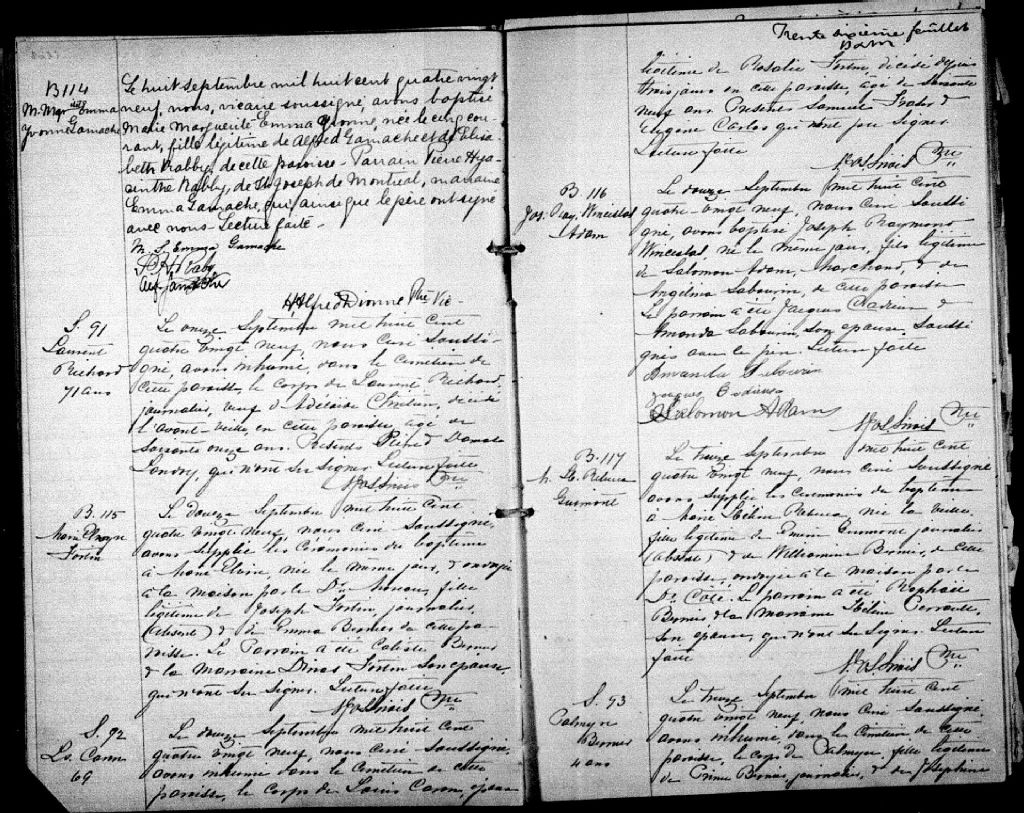 B 114
M. Mgr. Emma
Yvonne Gamache
Le huit septembre mil huit cent quatre vingt
neuf, nous, vicaire soussigné, avons baptisé
Marie Marguerite Emma Yvonne, née le cinq cou-
rant, fille légitime de Alfred Gamache et de Elisa-
beth Rabby, de cette paroisse - Parrain Pierre Hya-
cinthe Rabby, de St Joseph de Montreal, marraine
Emma Gamache, qui, ainsi que le père ont signé
avec nous - Lecture faite -
M. L. Emma Gamache
P. H. Raby
Alf. Gamache
H Alfred Dionne Ptre Vic-
S. 91
Laurent
Richard
71 ans
Le onze Septembre mil huit cent
quatre vingt neuf, nous Curé soussi-
gné, avons inhumé, dans le Cimetière de
cette paroisse, le corps de Laurent Richard,
journalier, veuf d'Adélaïde décédé
l'avant-veille, en cette paroisse, âgé de
soixante onze ans. Présents
qui n'ont su signer. Lecture faite
Ptre
B. 115
Marie
Fortin
Le douze Septembre mil huit cent
quatre vingt neuf, nous Curé soussigné,
avons supplée les Cérémonies du baptême
à Marie née le même jour, & ondoyée
à la maison par le Dr. fille
légitime de Joseph Fortin, journalier,
(absent) & de Emma Bernier de cette pa-
roisse. Le Parrain a été Calixte Bernier
& la Marraine Fortin son épouse,
qui n'ont su signer. Lecture faite
Ptre
S. 92
Ls. Caron
69
Le douze Septembre mil huit cent
quatre vingt neuf, nous Curé soussigné,
avons inhumé dans le Cimetière de cette
paroisse, le corps de Louis Caron, époux
Trente sixième feuillet
légitime de Rosalie Fortin, décédé depuis
trois jours en cette paroisse, âgé de soixante
neuf ans. Présents Samuel &
Eugène Carlos qui n'ont pu signer
Lecture faite
Ptre
B 116
Jos. Ray. Winceslas
Adam
Le douze Septembre mil huit cent
quatre-vingt neuf, nous Curé soussi-
gné, avons baptisé Joseph Raymond
Winceslas, né le même jour, fils légitime
de Salomon Adam, Marchand, & de
Angélina Sabourin, de cette paroisse
Le parrain a été Jacques &
Amanda Sabourin, son épouse, soussi-
gnés avec le père. Lecture faite
Jacques
Salomon Adam
Ptre
B. 117
Rebecca
Guimont
Le treize Septembre mil huit cent
quatre vingt neuf, nous Curé soussigné
avons supplée les cérémonies du baptême
à Marie Rebecca, née la veille,
fille légitime de Guimont journalier
(absent) & de Bernier, de cette
paroisse, ondoyée à la maison par le
Dr. Côté. Le parrain a été Raphaël
Bernier & la Marraine Perrault,
son épouse, qui n'ont su signer. Lecture
faite
Ptre
S. 93
Palmyre
Bernier
4 ans
Le treize Septembre mil huit cent
quatre vingt neuf, nous Curé soussigné,
avons inhumé, dans le Cimetière de cette
paroisse, le corps de Palmyre, fille légitime
de Bernier, journalier, & de Joséphine